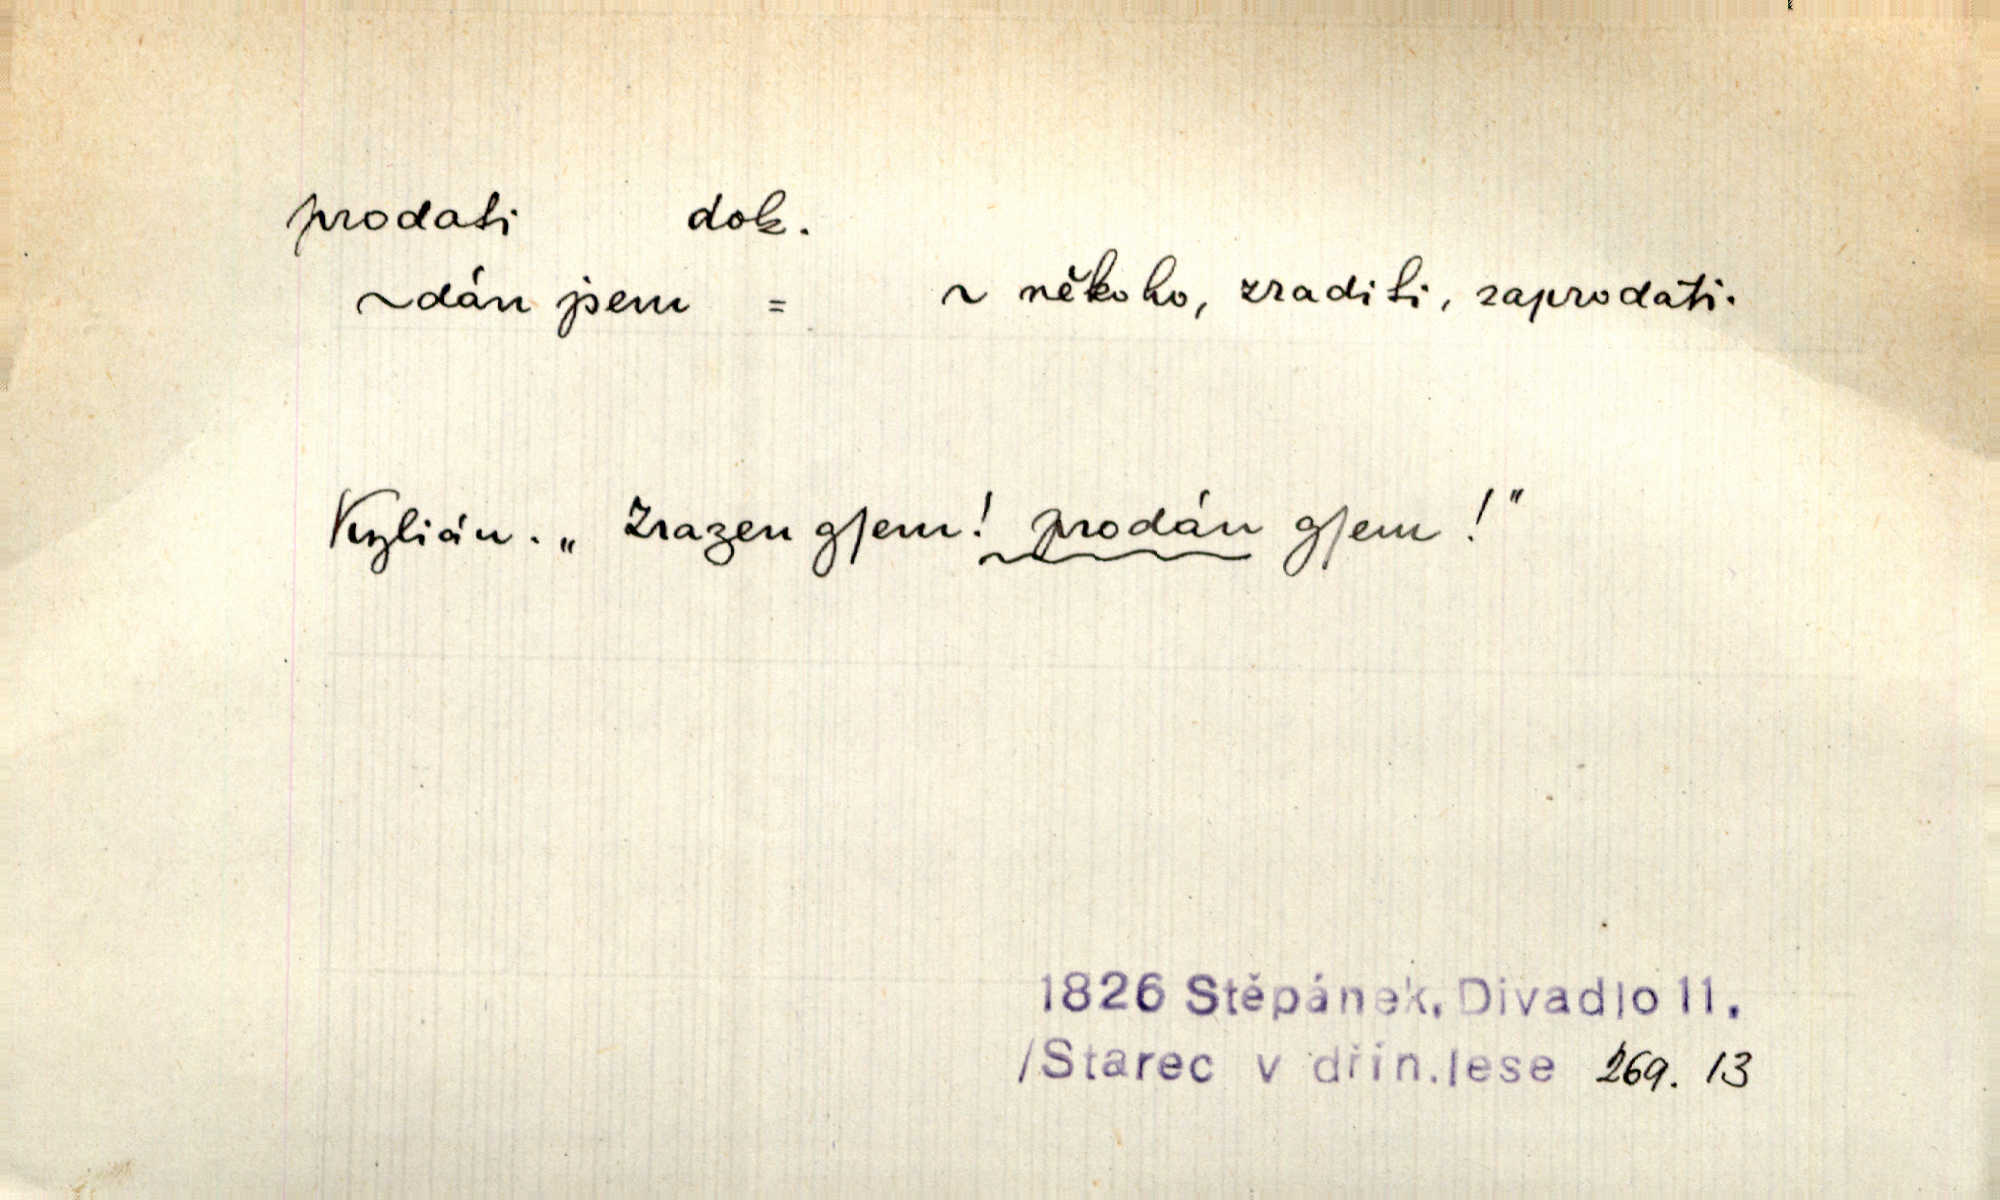 prodati dok.
~dán jsem = ~ někoho, zraditi, zaprodati.
Kylián. „Zrazen gsem! prodán gsem!"
1826 Stěpánek, Divadlo II.
/Starec v dřín.lese 269. 13